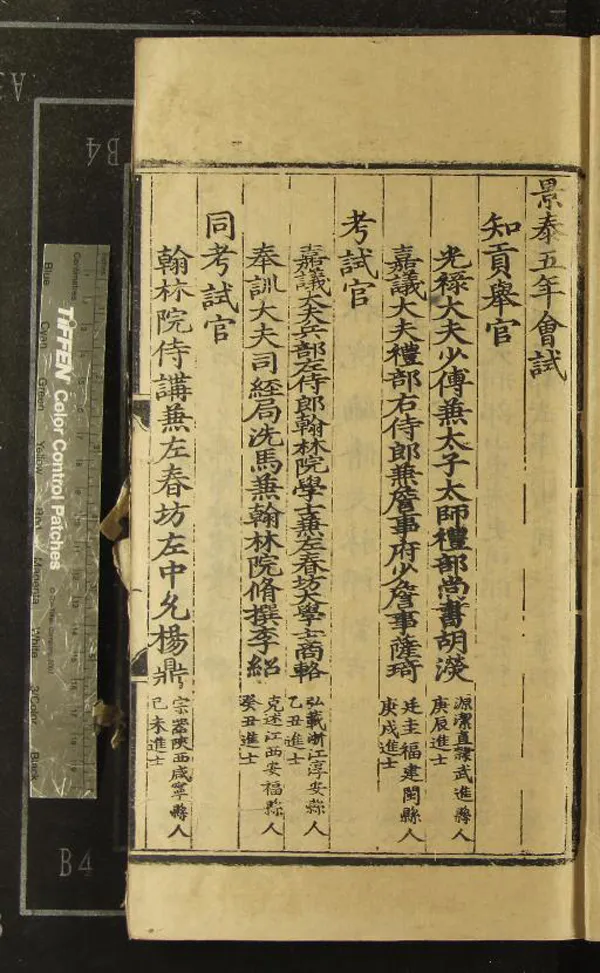 景泰五年會試
知貢舉官
光祿大夫少傅兼太子太師禮部尚書胡濙 源潔直隷武進縣人 庚辰進士
嘉議大夫禮部右侍郎兼詹事府少詹事薩琦 廷圭福建閩縣人 庚戌進士
考試官
嘉議大夫兵部左侍郎翰林院學士兼左春坊大學士商輅 弘載浙江淳安縣人 乙丑進士
奉訓大夫司經局洗馬兼翰林院脩撰李紹 克述江西安福縣人 癸丑進士
同考試官
翰林院侍講兼左春坊左中允楊鼎 宗器陝西咸寧縣人 己未進士
A3
B4
B4
Centimetres
TIFFEN Color Control Patches
Blue
Cyan
Green
Yellow
Red
Magenta
White
3/Color
Black